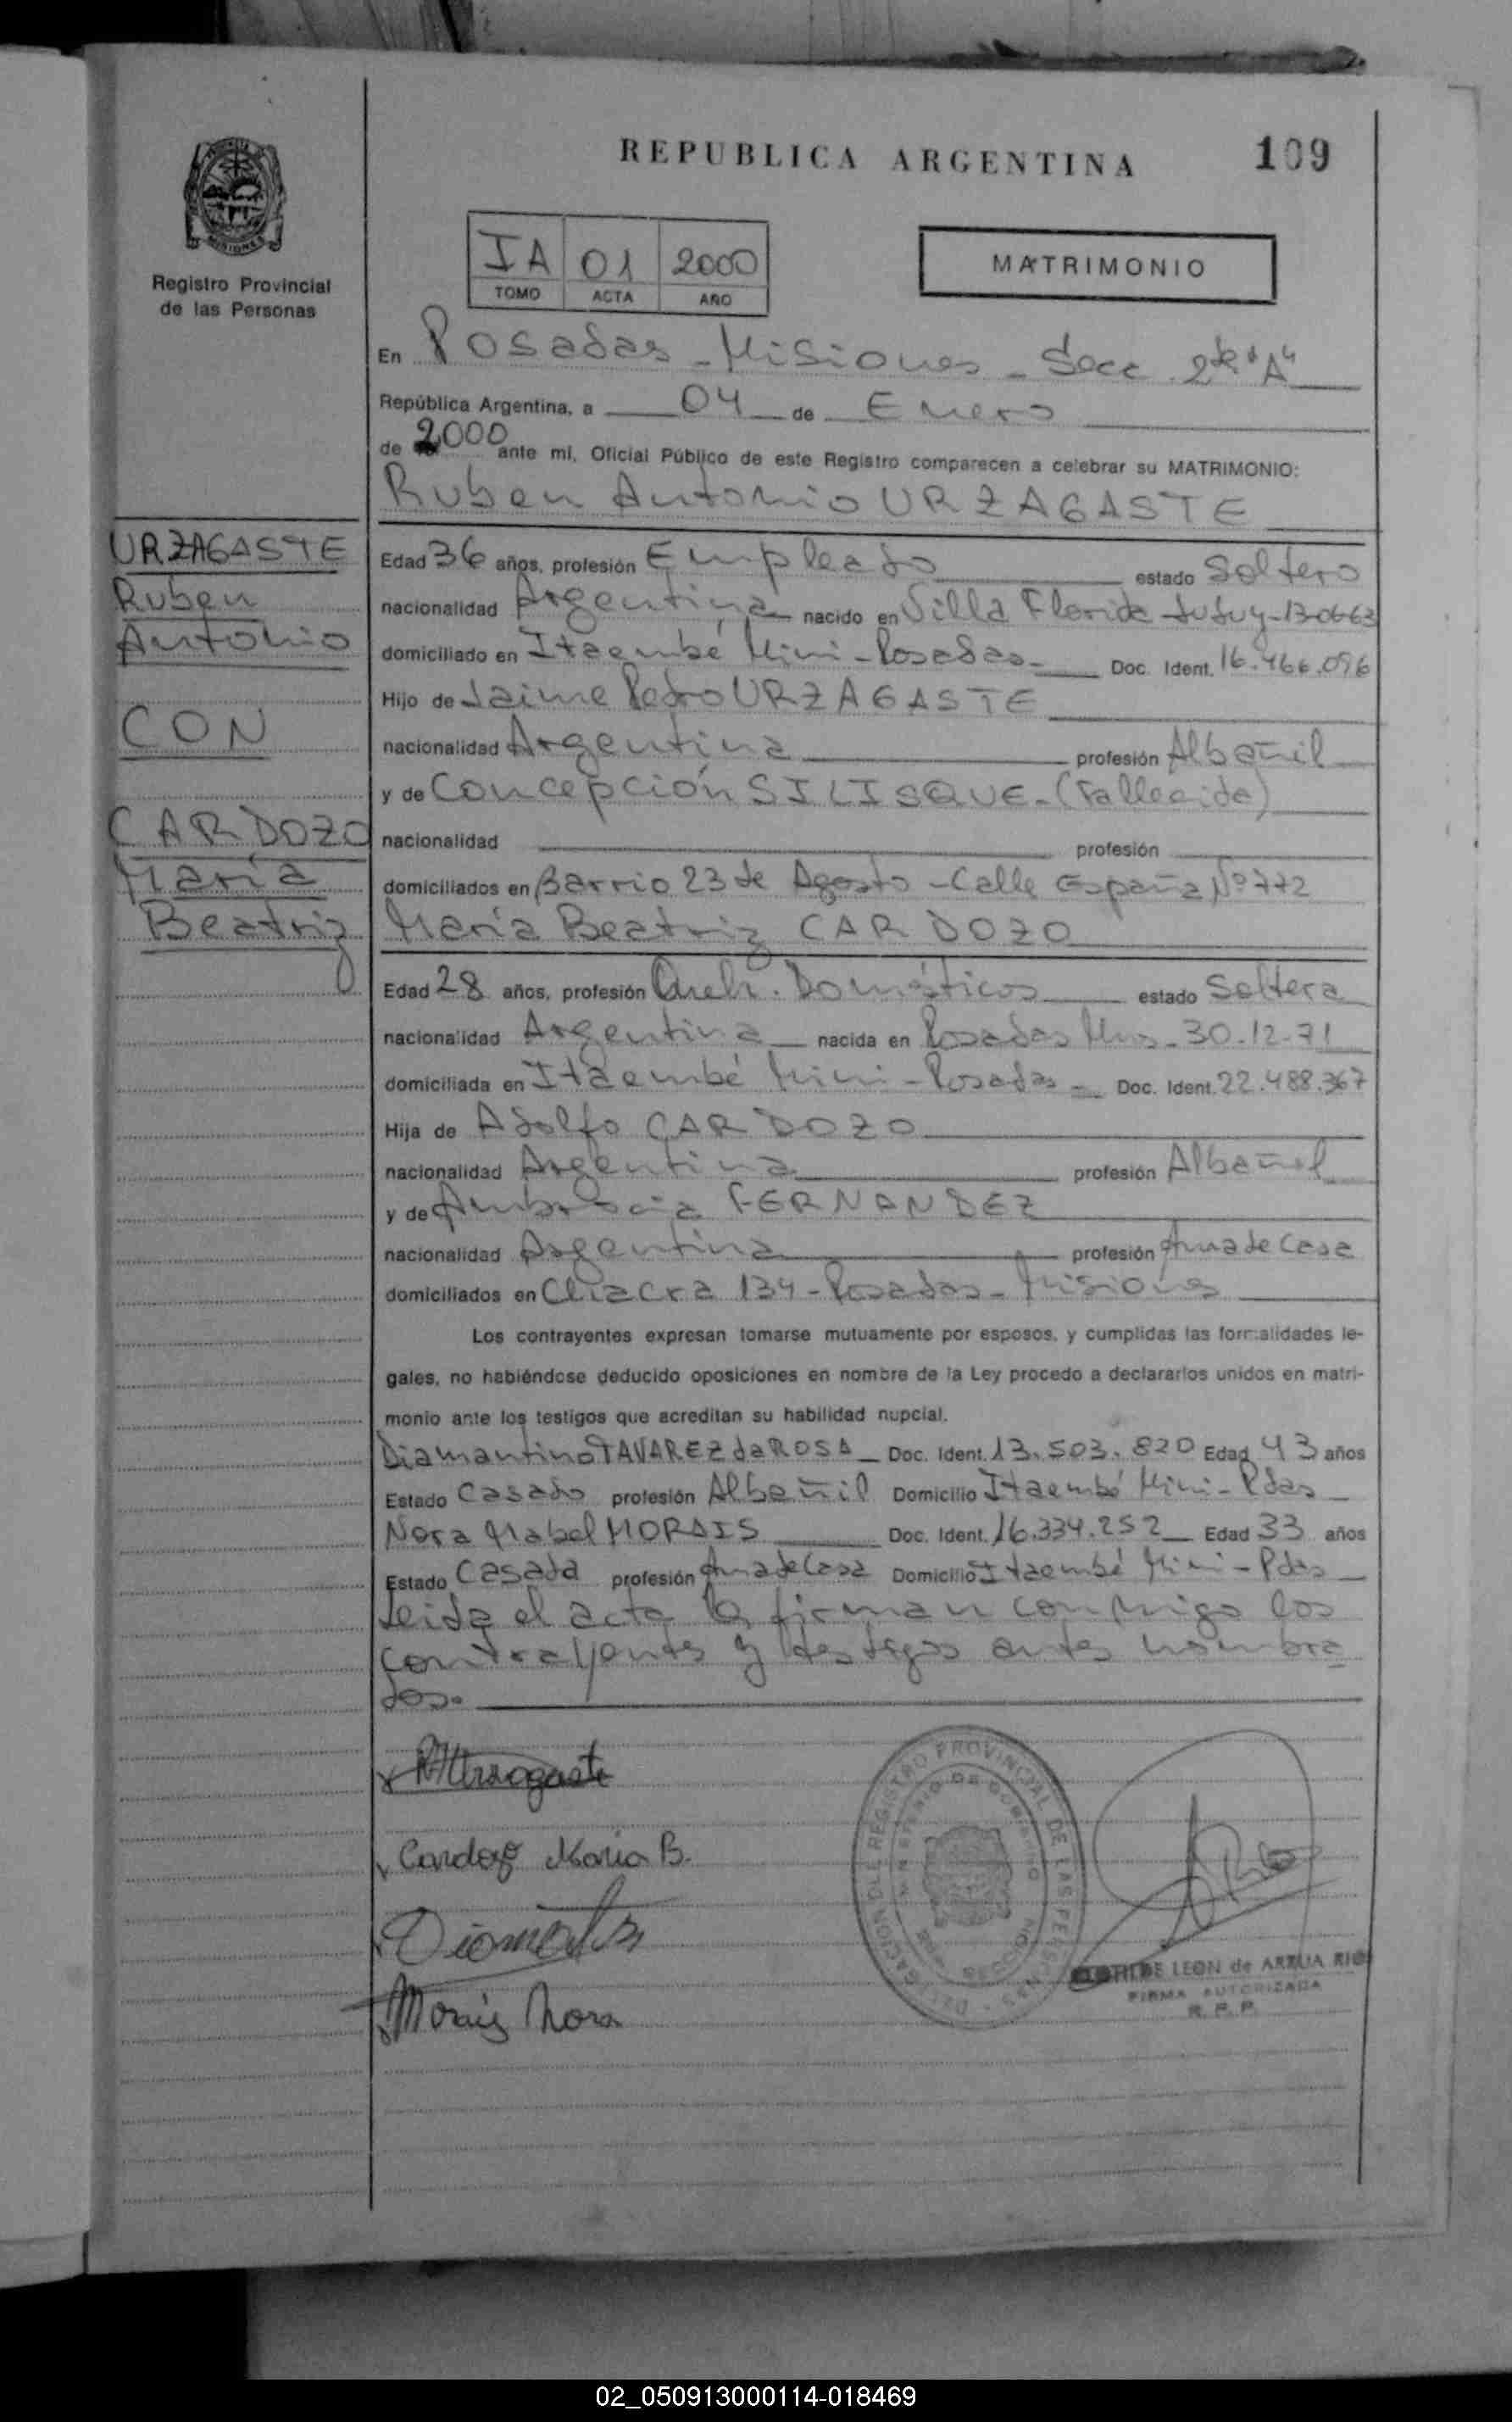 REPUBLICA ARGENTINA 109
MISIONES
Registro Provincial
de las Personas
IA 01 2000
TOMO ACTA AÑO
MATRIMONIO
En Posadas - Misiones - Secc. 2da "A"
República Argentina, a 04 de Enero
de 2000 ante mi, Oficial Público de este Registro comparecen a celebrar su MATRIMONIO:
Ruben Antonio URZAGASTE
URZAGASTE
Ruben
Antonio
CON
CARDOZO
María
Beatriz
Edad 36 años, profesión Empleado estado Soltero
nacionalidad Argentina nacido en Villa Florida Jujuy-13-06-63
domiciliado en Itaembé Mini - Posadas - Doc. Ident. 16.466.096
Hijo de Jaime Pedro URZAGASTE
nacionalidad Argentina profesión Albañil
y de Concepción SILISQUE - (Fallecida)
nacionalidad profesión
domiciliados en Barrio 23 de Agosto - Calle España Nº 772
María Beatriz CARDOZO
Edad 28 años, profesión Queh. Domésticos estado Soltera
nacionalidad Argentina nacida en Posadas Mns - 30-12-71
domiciliada en Itaembé Mini - Posadas - Doc. Ident. 22.488.367
Hija de Adolfo CARDOZO
nacionalidad Argentina profesión Albañil
y de Ambrosia FERNANDEZ
nacionalidad Argentina profesión Ama de Casa
domiciliados en Chacra 134 - Posadas - Misiones
Los contrayentes expresan tomarse mutuamente por esposos, y cumplidas las formalidades le-
gales, no habiéndose deducido oposiciones en nombre de la Ley procedo a declararlos unidos en matri-
monio ante los testigos que acreditan su habilidad nupcial.
Diamantino TAVAREZ da ROSA - Doc. Ident. 13.503.820 Edad 43 años
Estado Casado profesión Albañil Domicilio Itaembé Mini - Pdas -
Nora Mabel MORAIS Doc. Ident. 16.334.252 Edad 33 años
Estado Casada profesión Ama de Casa Domicilio Itaembé Mini - Pdas -
Leida el acta la firman conmigo los
contrayentes y testigos antes nombra
dos.
Cardozo Maria B.
Morais Nora
REGISTRO PROVINCIAL DE LAS PERSONAS
MINISTERIO DE GOBIERNO
LEON de ARRUA RIO
FIRMA AUTORIZADA
R. P. P.
02_050913000114-018469